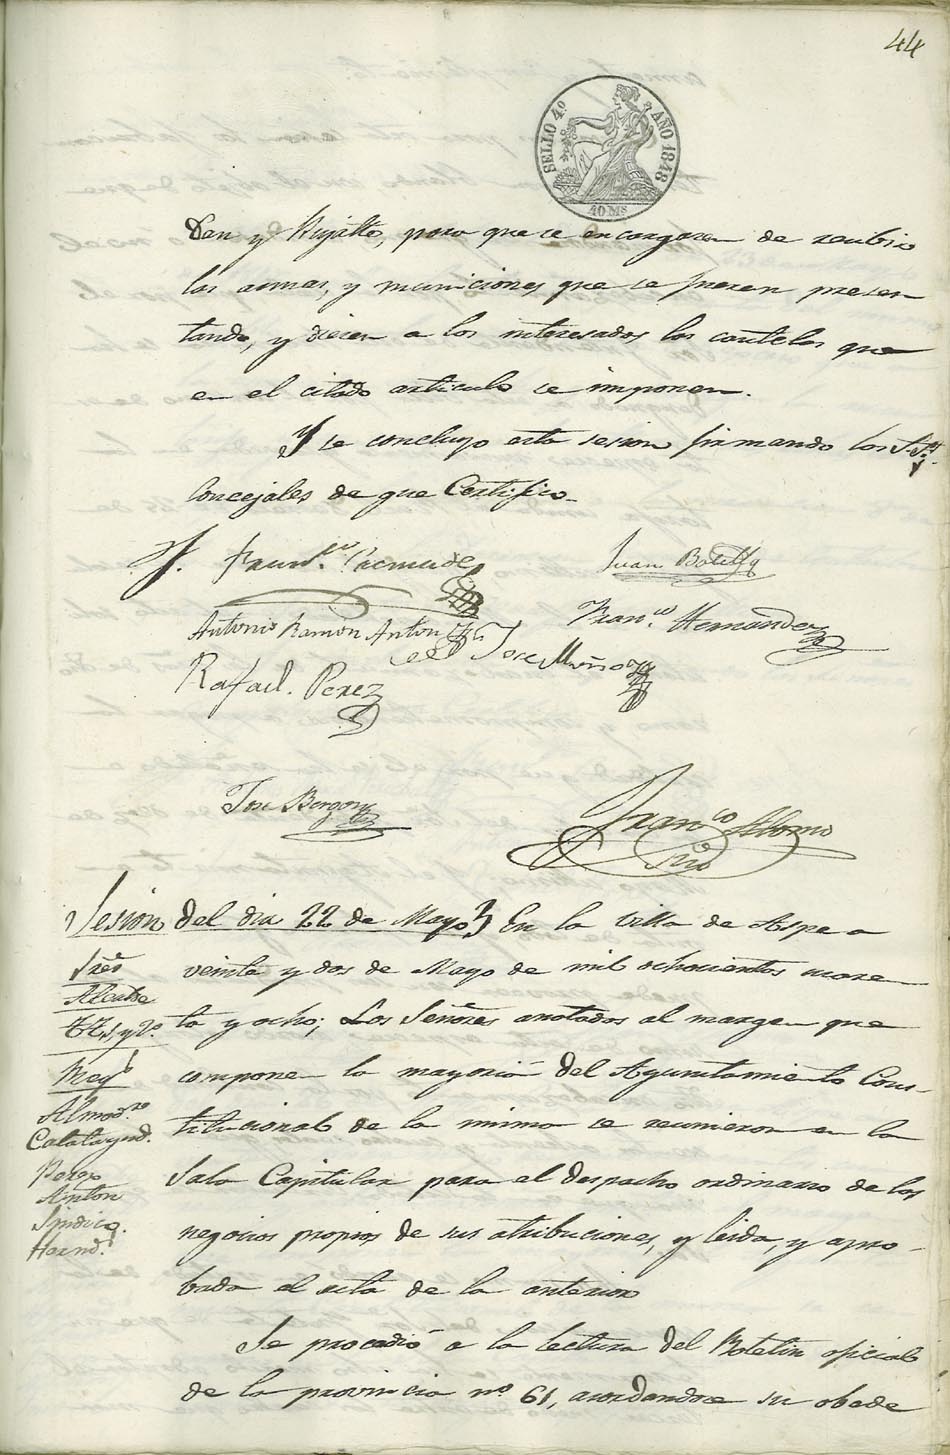 44
SELLO 4.º AÑO 1848
40 Ms
y para que se encargasen de recibir
las armas, y municiones que se fuesen presen
tando, y diesen a los interesados los cautelas que
en el citado articulo se imponen.
Y se concluyo esta sesion firmando los S.S.
Concejales de que Certifico
Juan Botella
Fran.co Hernandez
Antonio Ramon Anton
Jose Muñoz
Rafael. Perez
Jose
Fran.co
Srio
Sesion del dia 22 de Mayo} En la villa de Aspe a
Sres
veinte y dos de Mayo de mil ochocientos cuare
Alcalde
ta y ocho; Los Señores anotados al margen que
Reg.s
componen la mayoria del Ayuntamiento Cons-
Almod.ro
titucional de la misma se reunieron en la
Calatayud.
Perez
Sala Capitular para el despacho ordinario de los
Anton
Sindico.
negocios propios de sus atribuciones, y leida, y apro-
Hernd.z
bada el acta de la anterior
Se procedió a la lectura del Boletin oficial
de la provincia nº 61, acordandose su obede